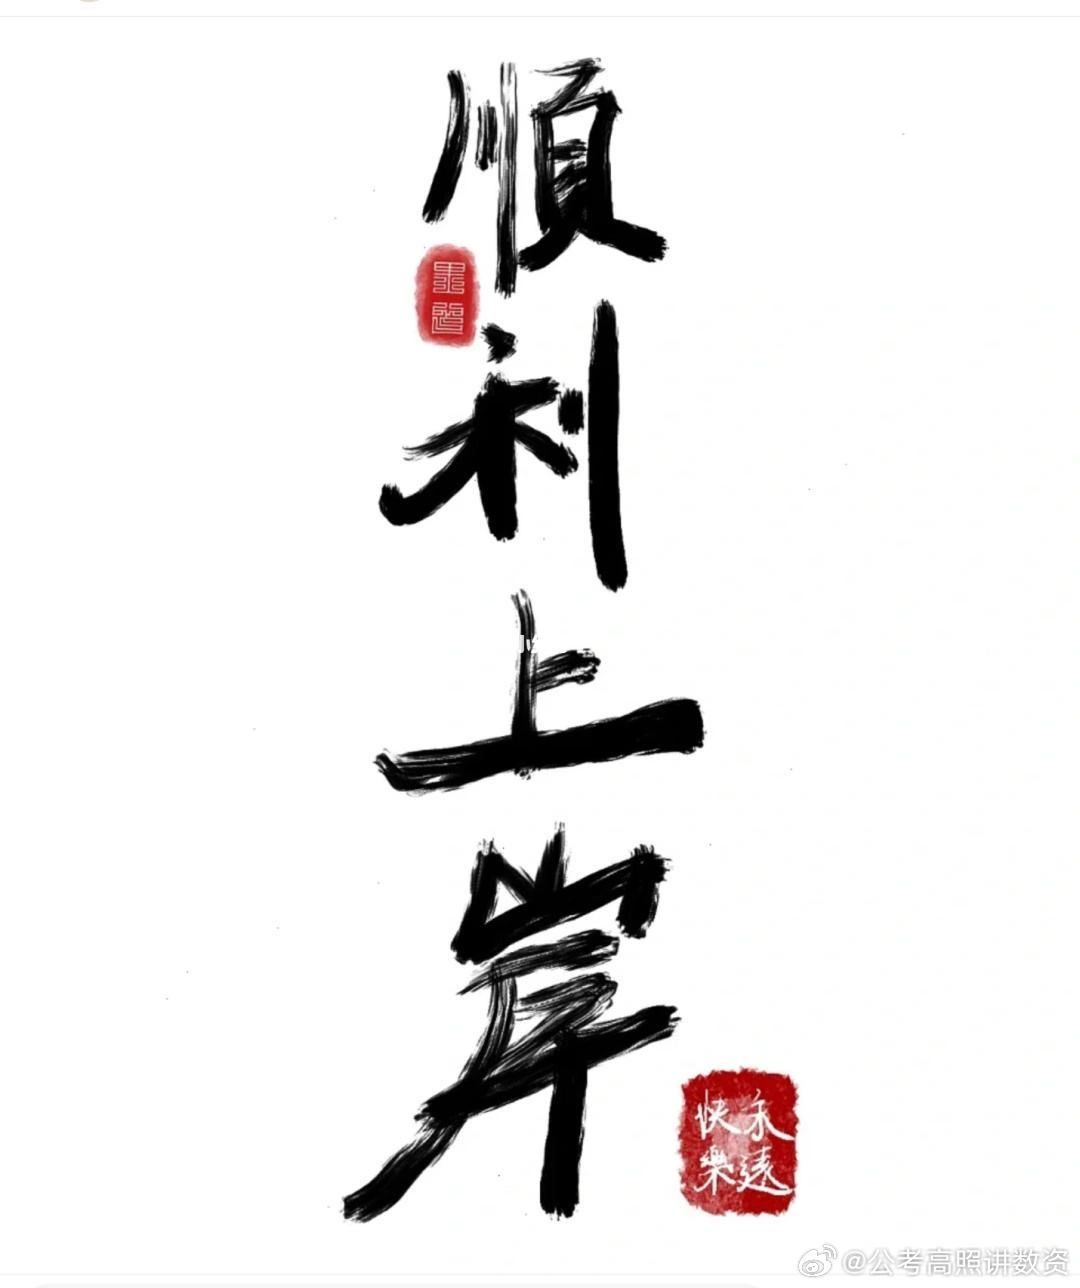 順利上岸
永遠
快樂
@公考高照讲数资